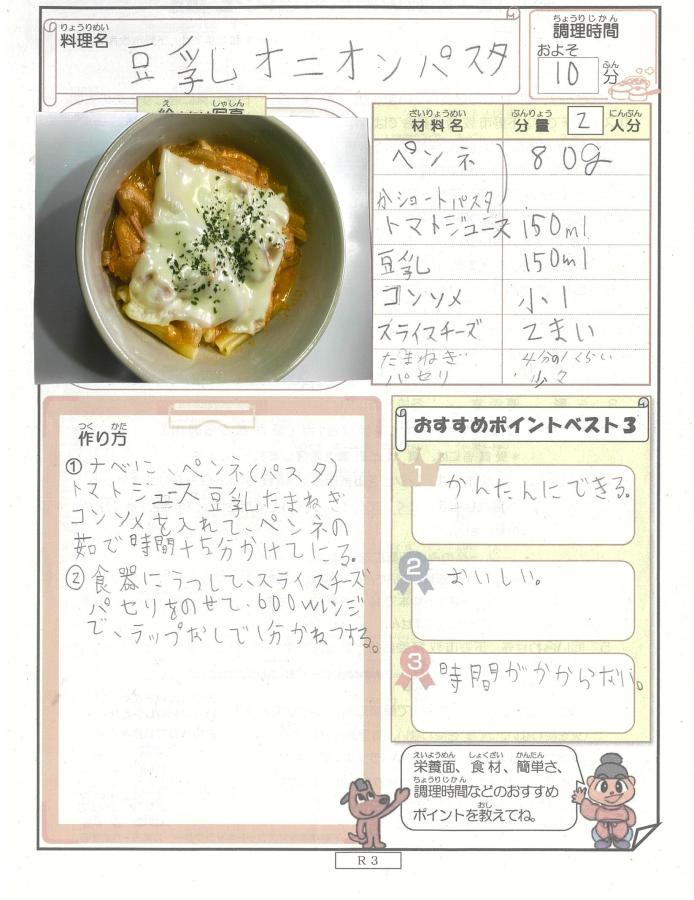 りょうりめい
料理名
豆乳オニオンパスタ
ちょうりじかん
調理時間
およそ
10 分
ぷん
え しゃしん
ざいりょうめい
材料名
ぶんりょう
分量 2 人分
にんぶん
ペンネ 80g
かショートパスタ
トマトジュース 150ml
豆乳 150ml
コンソメ 小1
スライスチーズ 2まい
たまねぎ 4分の1くらい
パセリ 少々
つく かた
作り方
①ナベに、ペンネ(パスタ)
トマトジュース豆乳たまねぎ
コンソメを入れて、ペンネの
茹で時間+5分かけてにる。
②食器にうつして、スライスチーズ
パセリをのせて、600wレンジ
で、ラップなしで1分かねつする。
おすすめポイントベスト3
1 かんたんにできる。
2 おいしい。
3 時間がかからない。
えいようめん しょくざい かんたん
栄養面、食材、簡単さ、
ちょうりじかん
調理時間などのおすすめ
おし
ポイントを教えてね。
R3